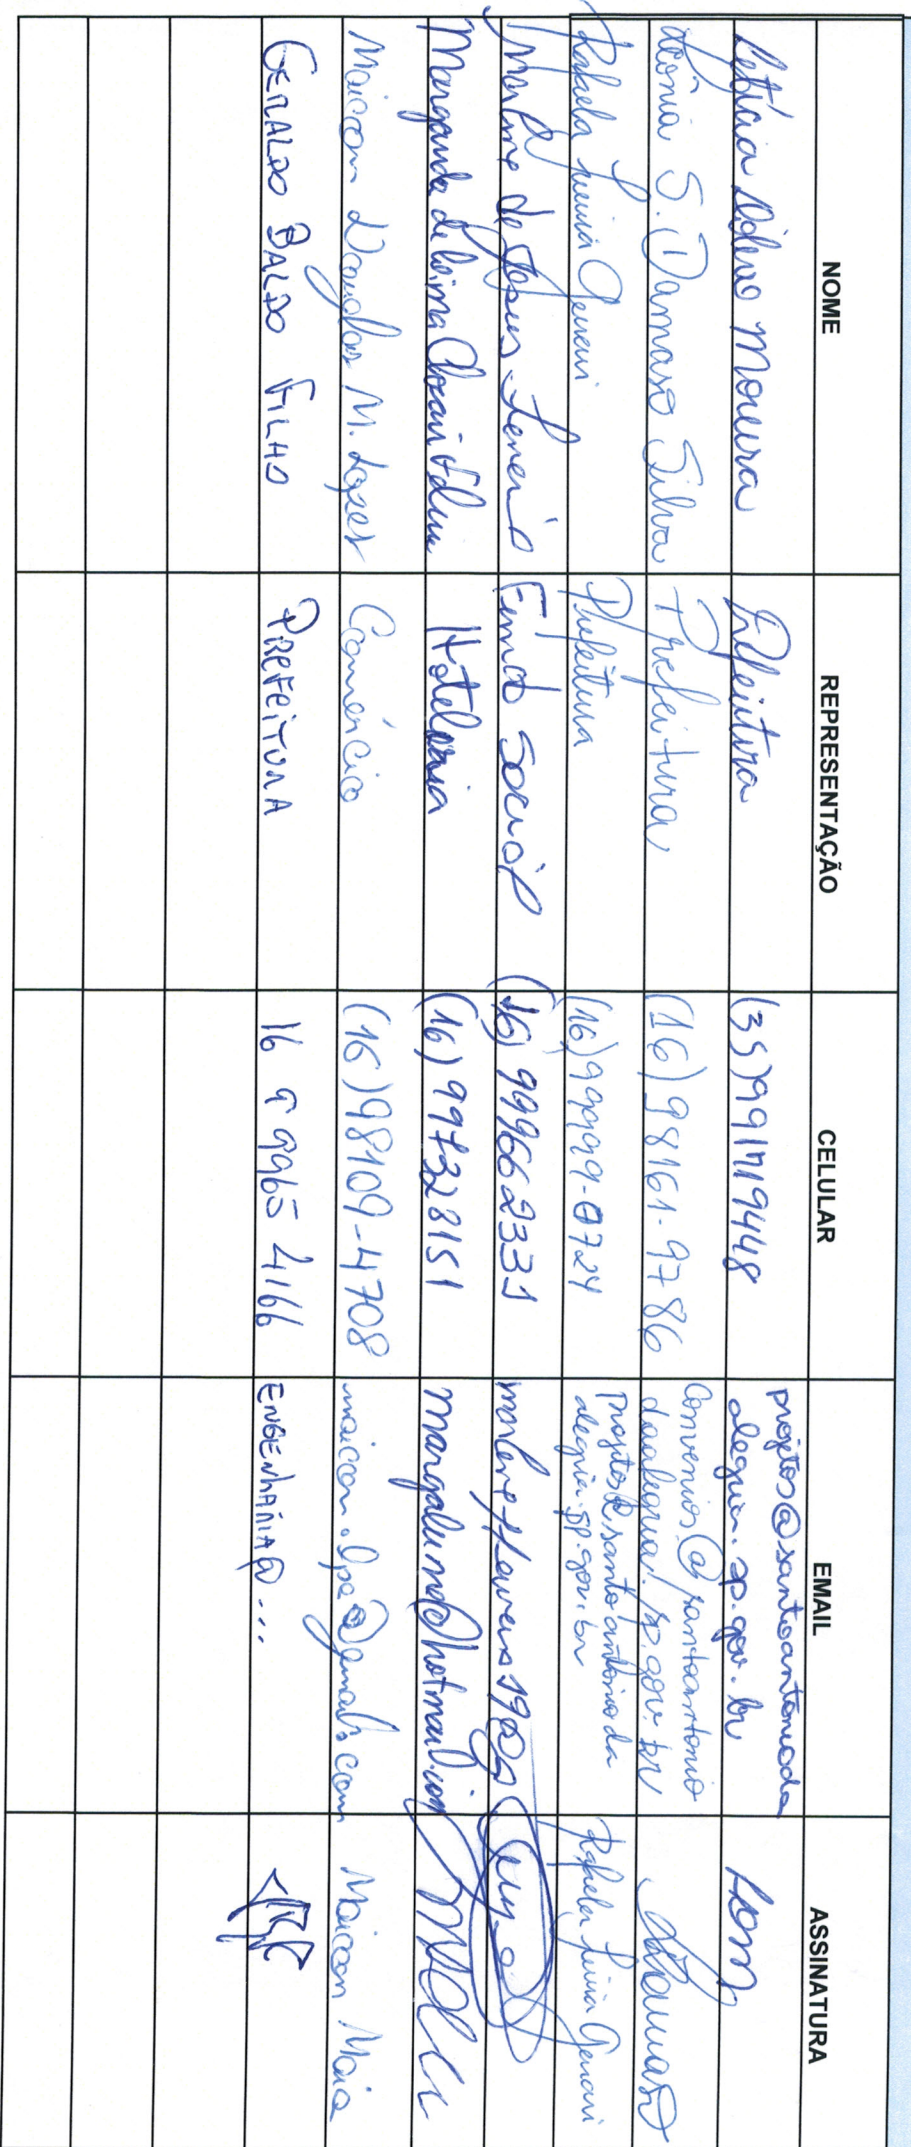 NOME REPRESENTAÇÃO CELULAR EMAIL ASSINATURA
Letícia Moreira Prefeitura (35)991719448 projetos@santoantonioda
alegria.sp.gov.br
S. Damaso Silva Prefeitura (16)98161-9786 convenios@santoantonio
daalegria.sp.gov.br Damaso
Rafaela Genari Prefeitura (16)99999-0724 projetos@santoantonioda
alegria.sp.gov.br Rafaela Genari
Marlene de Jesus Fundo Social (16) 999662331
Margarida de Lima Hotelaria (16) 997328151 margalumd@hotmail.com
Maicon Douglas M. Lopes Comércio (16)98109-4708 Maicon Maia
GERALDO BALDO FILHO PREFEITURA 16 9 9965 4166 ENGENHARIA@...